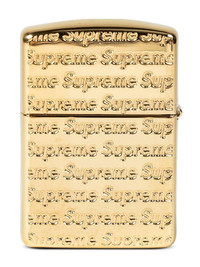 Supreme Supreme Supreme
eme Supreme Sup
Supreme Supreme
eme Supreme Sup
eme Supreme Sup
Supreme Supreme
eme Supreme Sup
Supreme Supreme
eme Supreme Sup